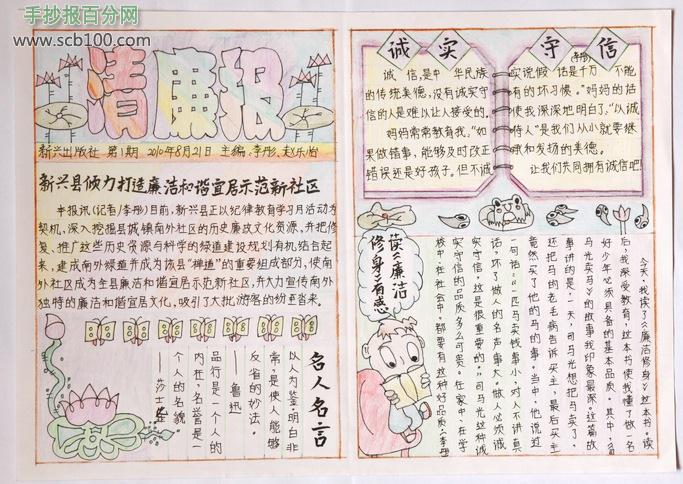 手抄报百分网
www.scb100.com
清廉报
新兴出版社 第1期 2010年8月21日 主编:李彤、赵乐怡
新兴县倾力打造廉洁和谐宜居示范新社区
本报讯(记者/李彤)目前,新兴县正以纪律教育学习月活动为
契机,深入挖掘县城镇南外社区的历史廉政文化资源,并把修
复、推广这些历史资源与科学的绿道建设规划有机结合起
来,建成南外绿道并成为该县“禅道”的重要组成部分,使南
外社区成为全县廉洁和谐宜居示范新社区,并大力宣传南外
独特的廉洁和谐宜居文化,吸引了大批游客的纷至沓来。
名人名言
以人为鉴,明白非
常,是使人能够
反省的妙法。
——鲁迅
品行是一个人的
内在,名誉是一
个人的名貌
——莎士比
诚实守信
(李彤)
诚信,是中华民族
的传统美德,没有诚实守
信的人是难以让人接受的。
妈妈常常教育我,“如
果做错事,能够及时改正
错误还是好孩子。但不诚
实说假话是千万不能
有的坏习惯。”妈妈的话
使我深深地明白了,“以诚
待人”是我们从小就要继
承和发扬的美德。
让我们共同拥有诚信吧!
读《廉洁
修身》有感
今天,我读了《廉洁修身》这本书。读
后,我深受教育,这本书使我懂了做一名
好少年必须具备的基本品质。其中,《司
马光卖马》的故事我印象最深。这篇故
事讲的是:一天,司马光想把马卖了,
还把马的老毛病告诉买主,最后买主
竟然买了他的马的事。当中,他说过
一句话:“一匹马卖钱事小,对人不讲真
话,坏了做人的名声事大。做人必须诚
实守信,这是很重要的。”司马光这种诚
实守信的品质多么可贵。在家中、在学
校中、在社会中,都要有这种好品质(李彤)